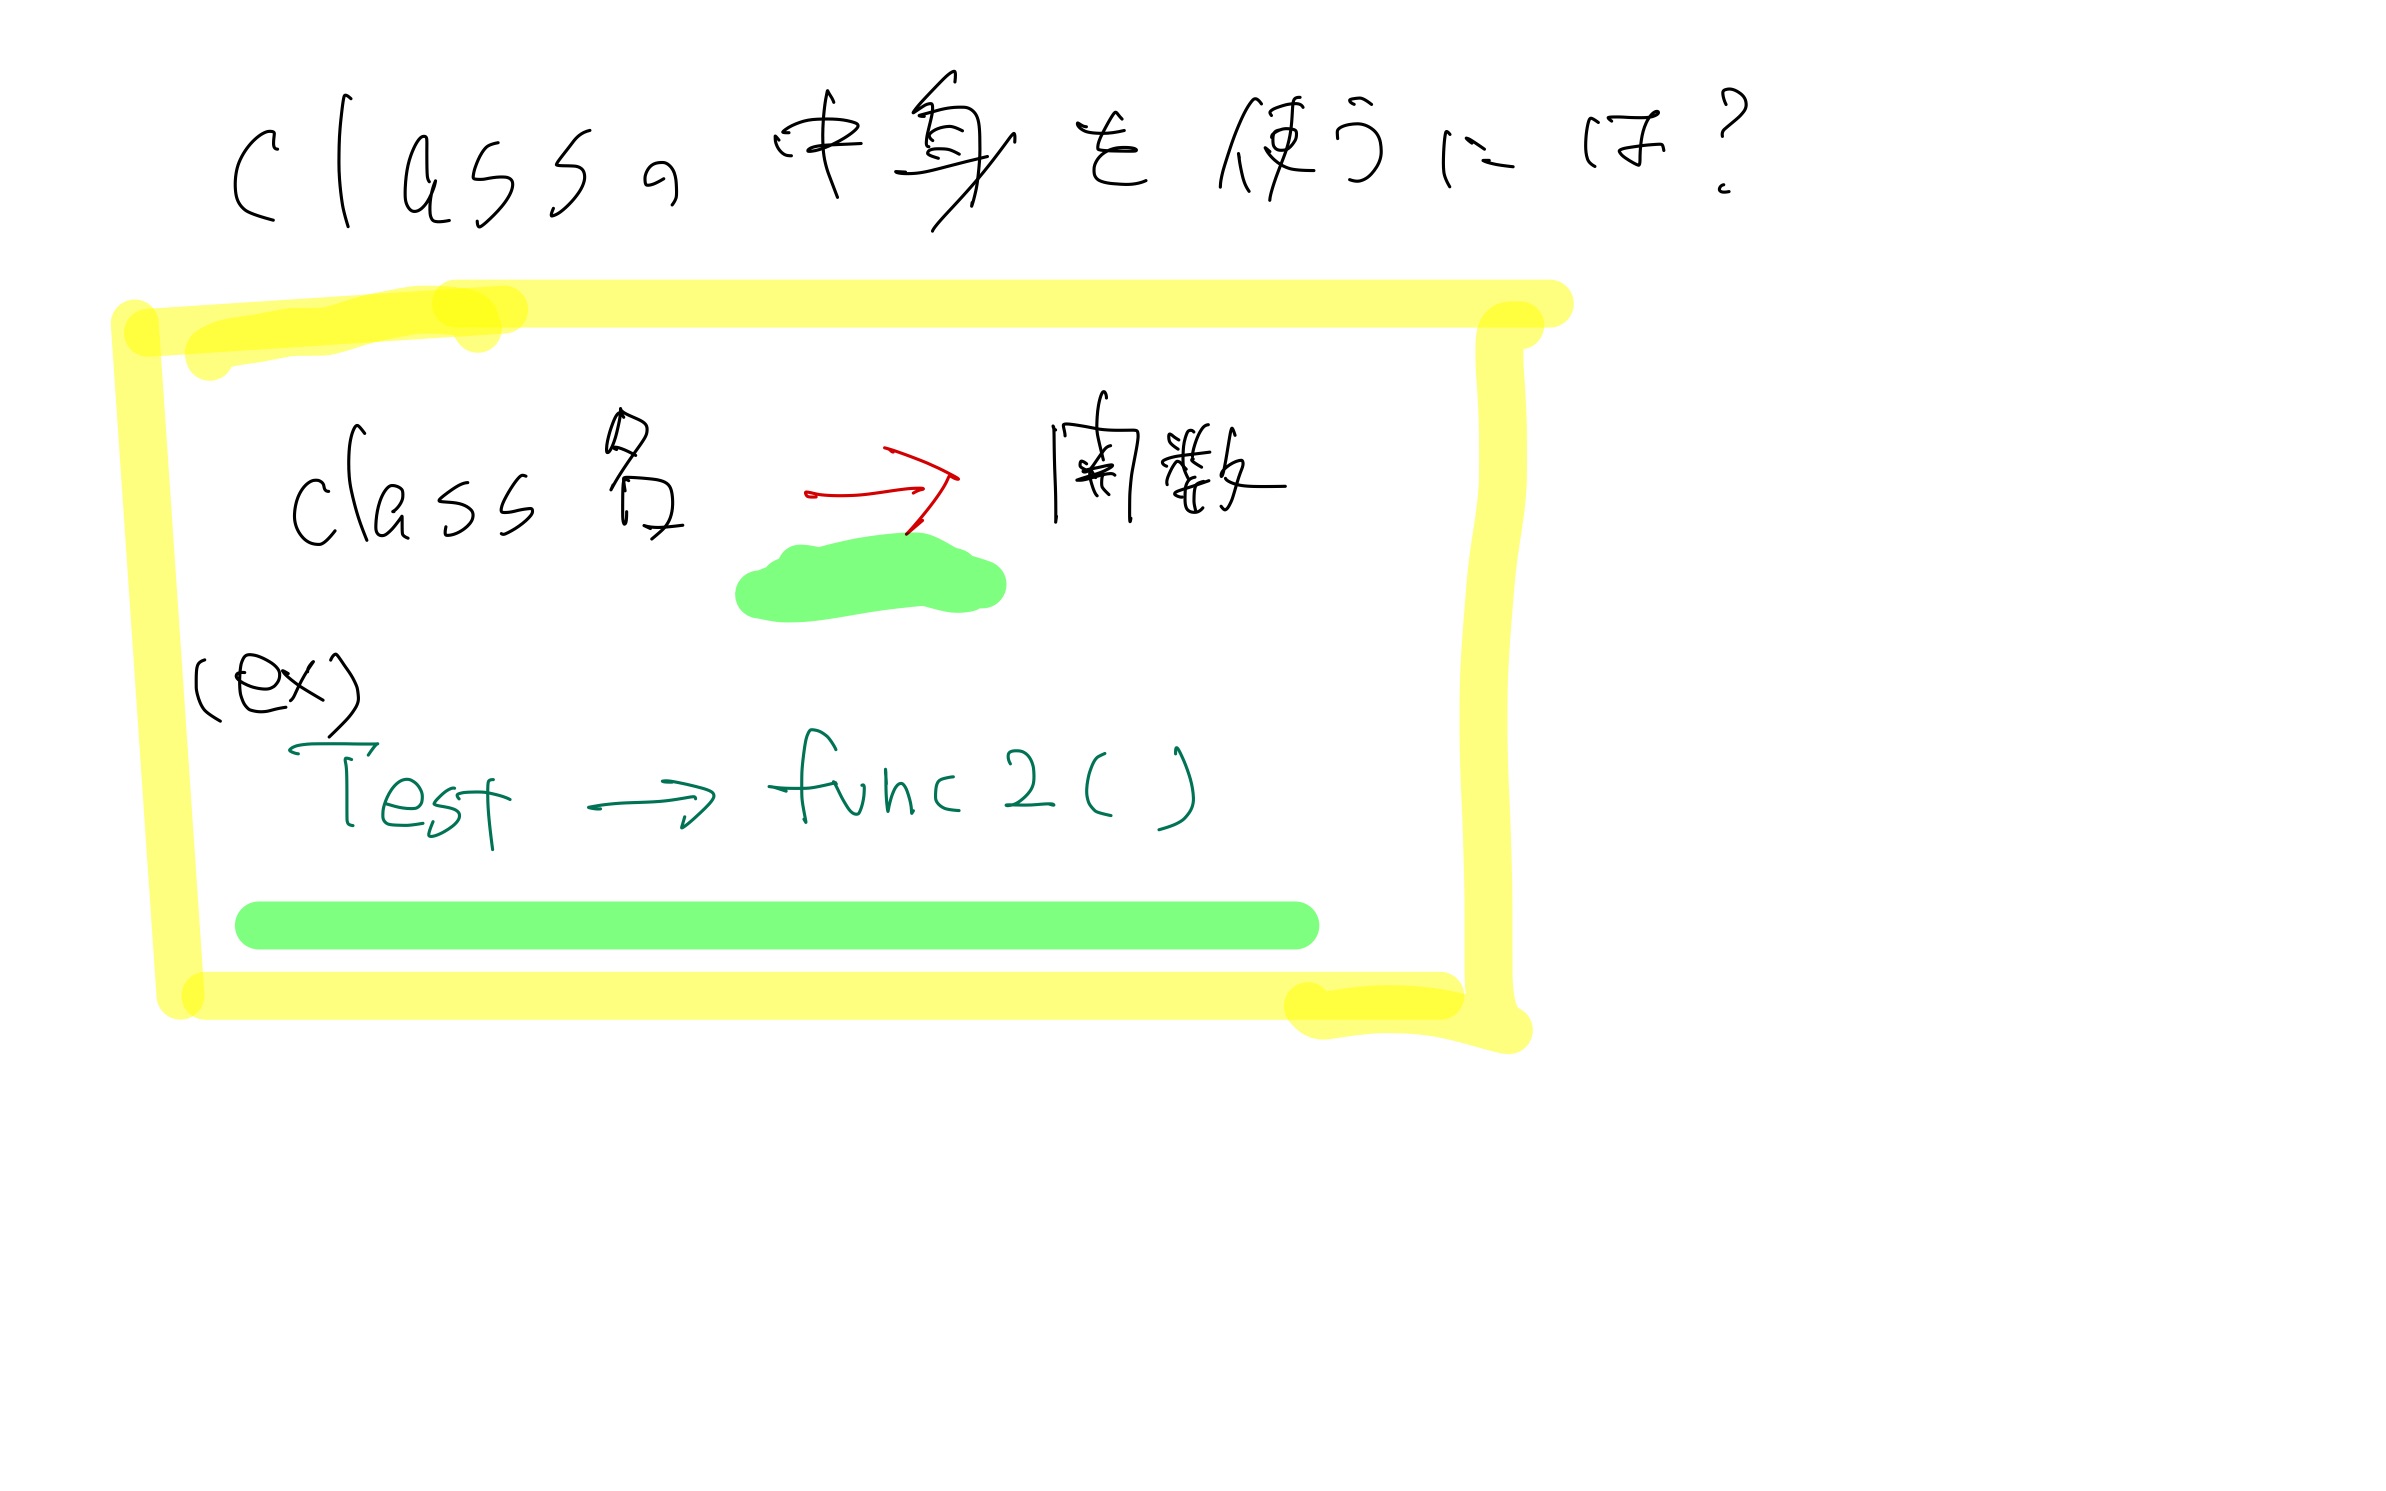 classの中身を使うには?
class名 → 関数
(ex)
Test → func2()